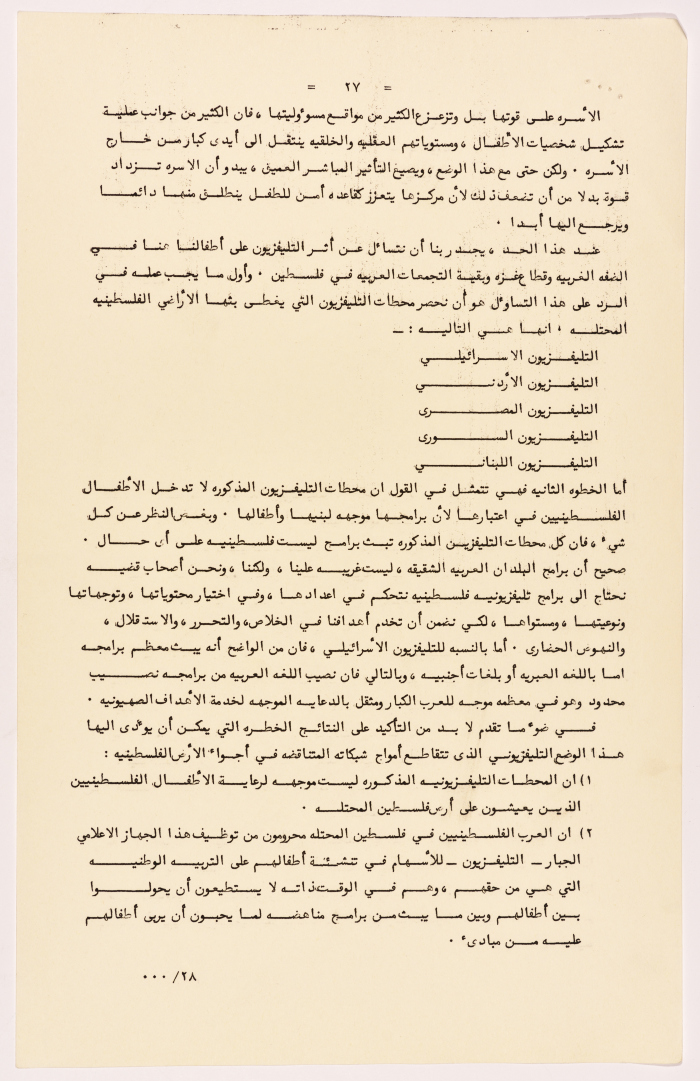 = ٢٧ =
الأسره على قوتها بل وتزعزع الكثير من مواقع مسوؤوليتها ، فان الكثير من جوانب عملية
تشكيل شخصيات الأطفال ، ومستوياتهم العقليه والخلقيه ينتقل الى أيدى كبار من خارج
الأسره ٠ ولكن حتى مع هذا الوضع ، وبصيغ التأثير المباشر العميق ، يبدو أن الاسره تزداد
قوة بدلا من أن تضعف ذلك لأن مركزها يتعزز كقاعده أمن للطفل ينطلق منها دائما
ويرجع اليها أبدا ٠
عند هذا الحد ، يجدر بنا أن نتسائل عن أثر التليفزيون على أطفالنا هنا في
الضفه الغربيه وقطاع غزه وبقية التجمعات العربيه في فلسطين ٠ وأول ما يجب عمله في
الرد على هذا التساوئل هو أن نحصر محطات التليفزيون التي يغطى بثها الأراضي الفلسطينيه
المحتله ، انها هي التاليه : ــ
التليفزيون الاسرائيلي
التليفزيون الأردني
التليفزيون المصرى
التليفزيون السورى
التليفزيون اللبناني
أما الخطوه الثانيه فهي تتمثل في القول ان محطات التليفزيون المذكوره لا تدخل الأطفال
الفلسطينيين في اعتبارها لأن برامجها موجهه لبنيها وأطفالها ٠ وبغض النظر عن كل
شيء ، فان كل محطات التليفزيين المذكوره تبث برامج ليست فلسطينيه على أى حال ٠
صحيح أن برامج البلدان العربيه الشقيقه ، ليست غريبه علينا ، ولكننا ، ونحن أصحاب قضيه
نحتاج الى برامج تليفزيونيه فلسطينيه نتحكم في اعدادها ، وفي اختيار محتوياتها ، وتوجهاتها
ونوعيتها ، ومستواها ، لكي نضمن أن تخدم أهدافنا في الخلاص، والتحرر ، والاستقلال ،
والنهوض الحضارى ٠ أما بالنسبه للتليفزيون الأسرائيلي ، فان من الواضح أنه يبث معظم برامجه
اما باللغه العبريه أو بلغات أجنبيه ، وبالتالي فان نصيب اللغه العربيه من برامجه نصيب
محدود وهو في معظمه موجه للعرب الكبار ومثقل بالدعايه الموجهه لخدمة الأهداف الصهيونيه ٠
في ضوء ما تقدم لا بد من التأكيد على النتائج الخطره التي يمكن أن يوءدى اليها
هذا الوضع التليفزيوني الذى تتقاطع أمواج شبكاته المتناقضه في أجواء الأرض الفلسطينيه :
١) ان المحطات التليفزيونيه المذكوره ليست موجهه لرعاية الأطفال الفلسطينيين
الذين يعيشون على أرض فلسطين المحتله ٠
٢) ان العرب الفلسطينيين في فلسطين المحتله محرومون من توظيف هذا الجهاز الاعلامي
الجبار ــ التليفزيون ــ للأسهام في تنشئة أطفالهم على التربيه الوطنيه
التي هي من حقهم ، وهم في الوقت ذاته لا يستطيعون أن يحولوا
بين أطفالهم وبين ما يبث من برامج مناهضه لما يحبون أن يربى أطفالهم
عليه من مبادىء ٠
٢٨/ ٠٠٠